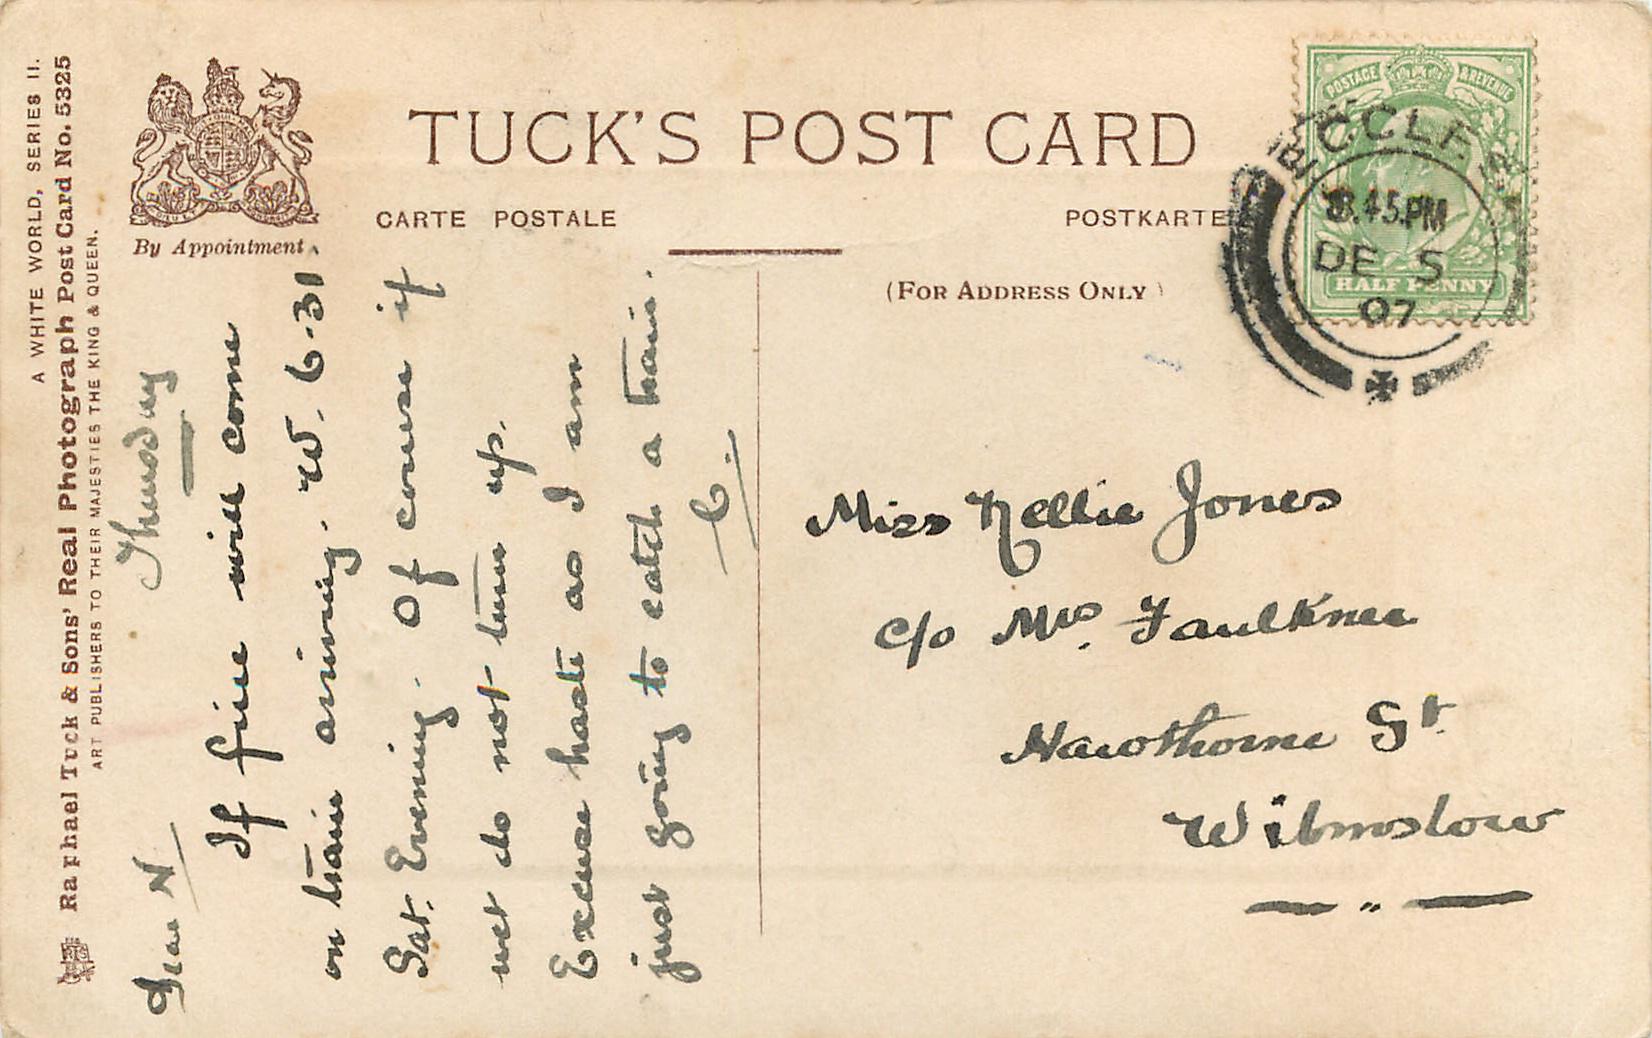 A WHITE WORLD, SERIES II.
Raphael Tuck & Sons' Real Photograph Post Card No. 5325
ART PUBLISHERS TO THEIR MAJESTIES THE KING & QUEEN.
By Appointment
TUCK'S POST CARD
CARTE POSTALE
POSTKARTE
(FOR ADDRESS ONLY)
POSTAGE & REVENUE
HALF PENNY
8.45 PM
DE 5
07
Thursday
Dear N
If fine will come
on train arriving. W. 6.31
Sat. Evening. Of course if
wet do not turn up.
Excuse haste as I am
just going to catch a train.
C.
Miss Nellie Jones
c/o Mrs. Faulkner
Hawthorne St.
Wilmslow